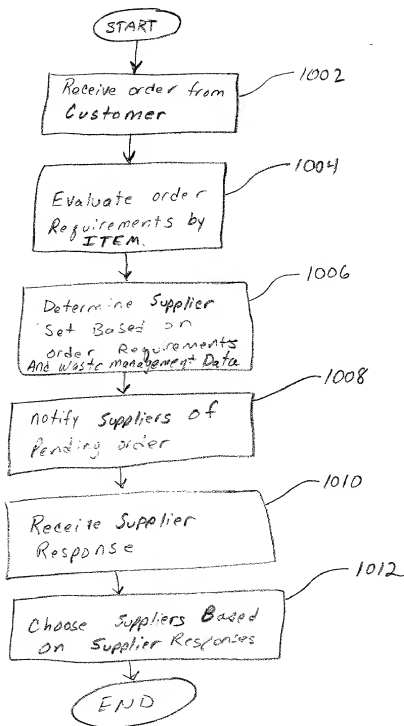 START
1002
Receive order from
Customer
1004
Evaluate order
Requirements by
ITEM.
1006
Determine Supplier
Set Based on
order Requirements
And Waste management Data
1008
notify Suppliers of
Pending order
1010
Receive Supplier
Response
1012
Choose Suppliers Based
on Supplier Responses
END